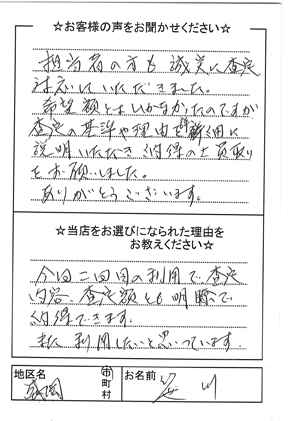 ☆お客様の声をお聞かせください☆
担当者の方も誠実に査定
対応いただきました。
希望額とはいかなかったのですが
査定の基準や理由を詳細に
説明いただき納得の上買取り
をお願いしました。
ありがとうございます。
☆当店をお選びになられた理由を
お教えください☆
今回二回目の利用で査定
内容、査定額とも明瞭で
納得できます。
また利用したいと思っています。
地区名
盛岡
市
町
村
お名前
川